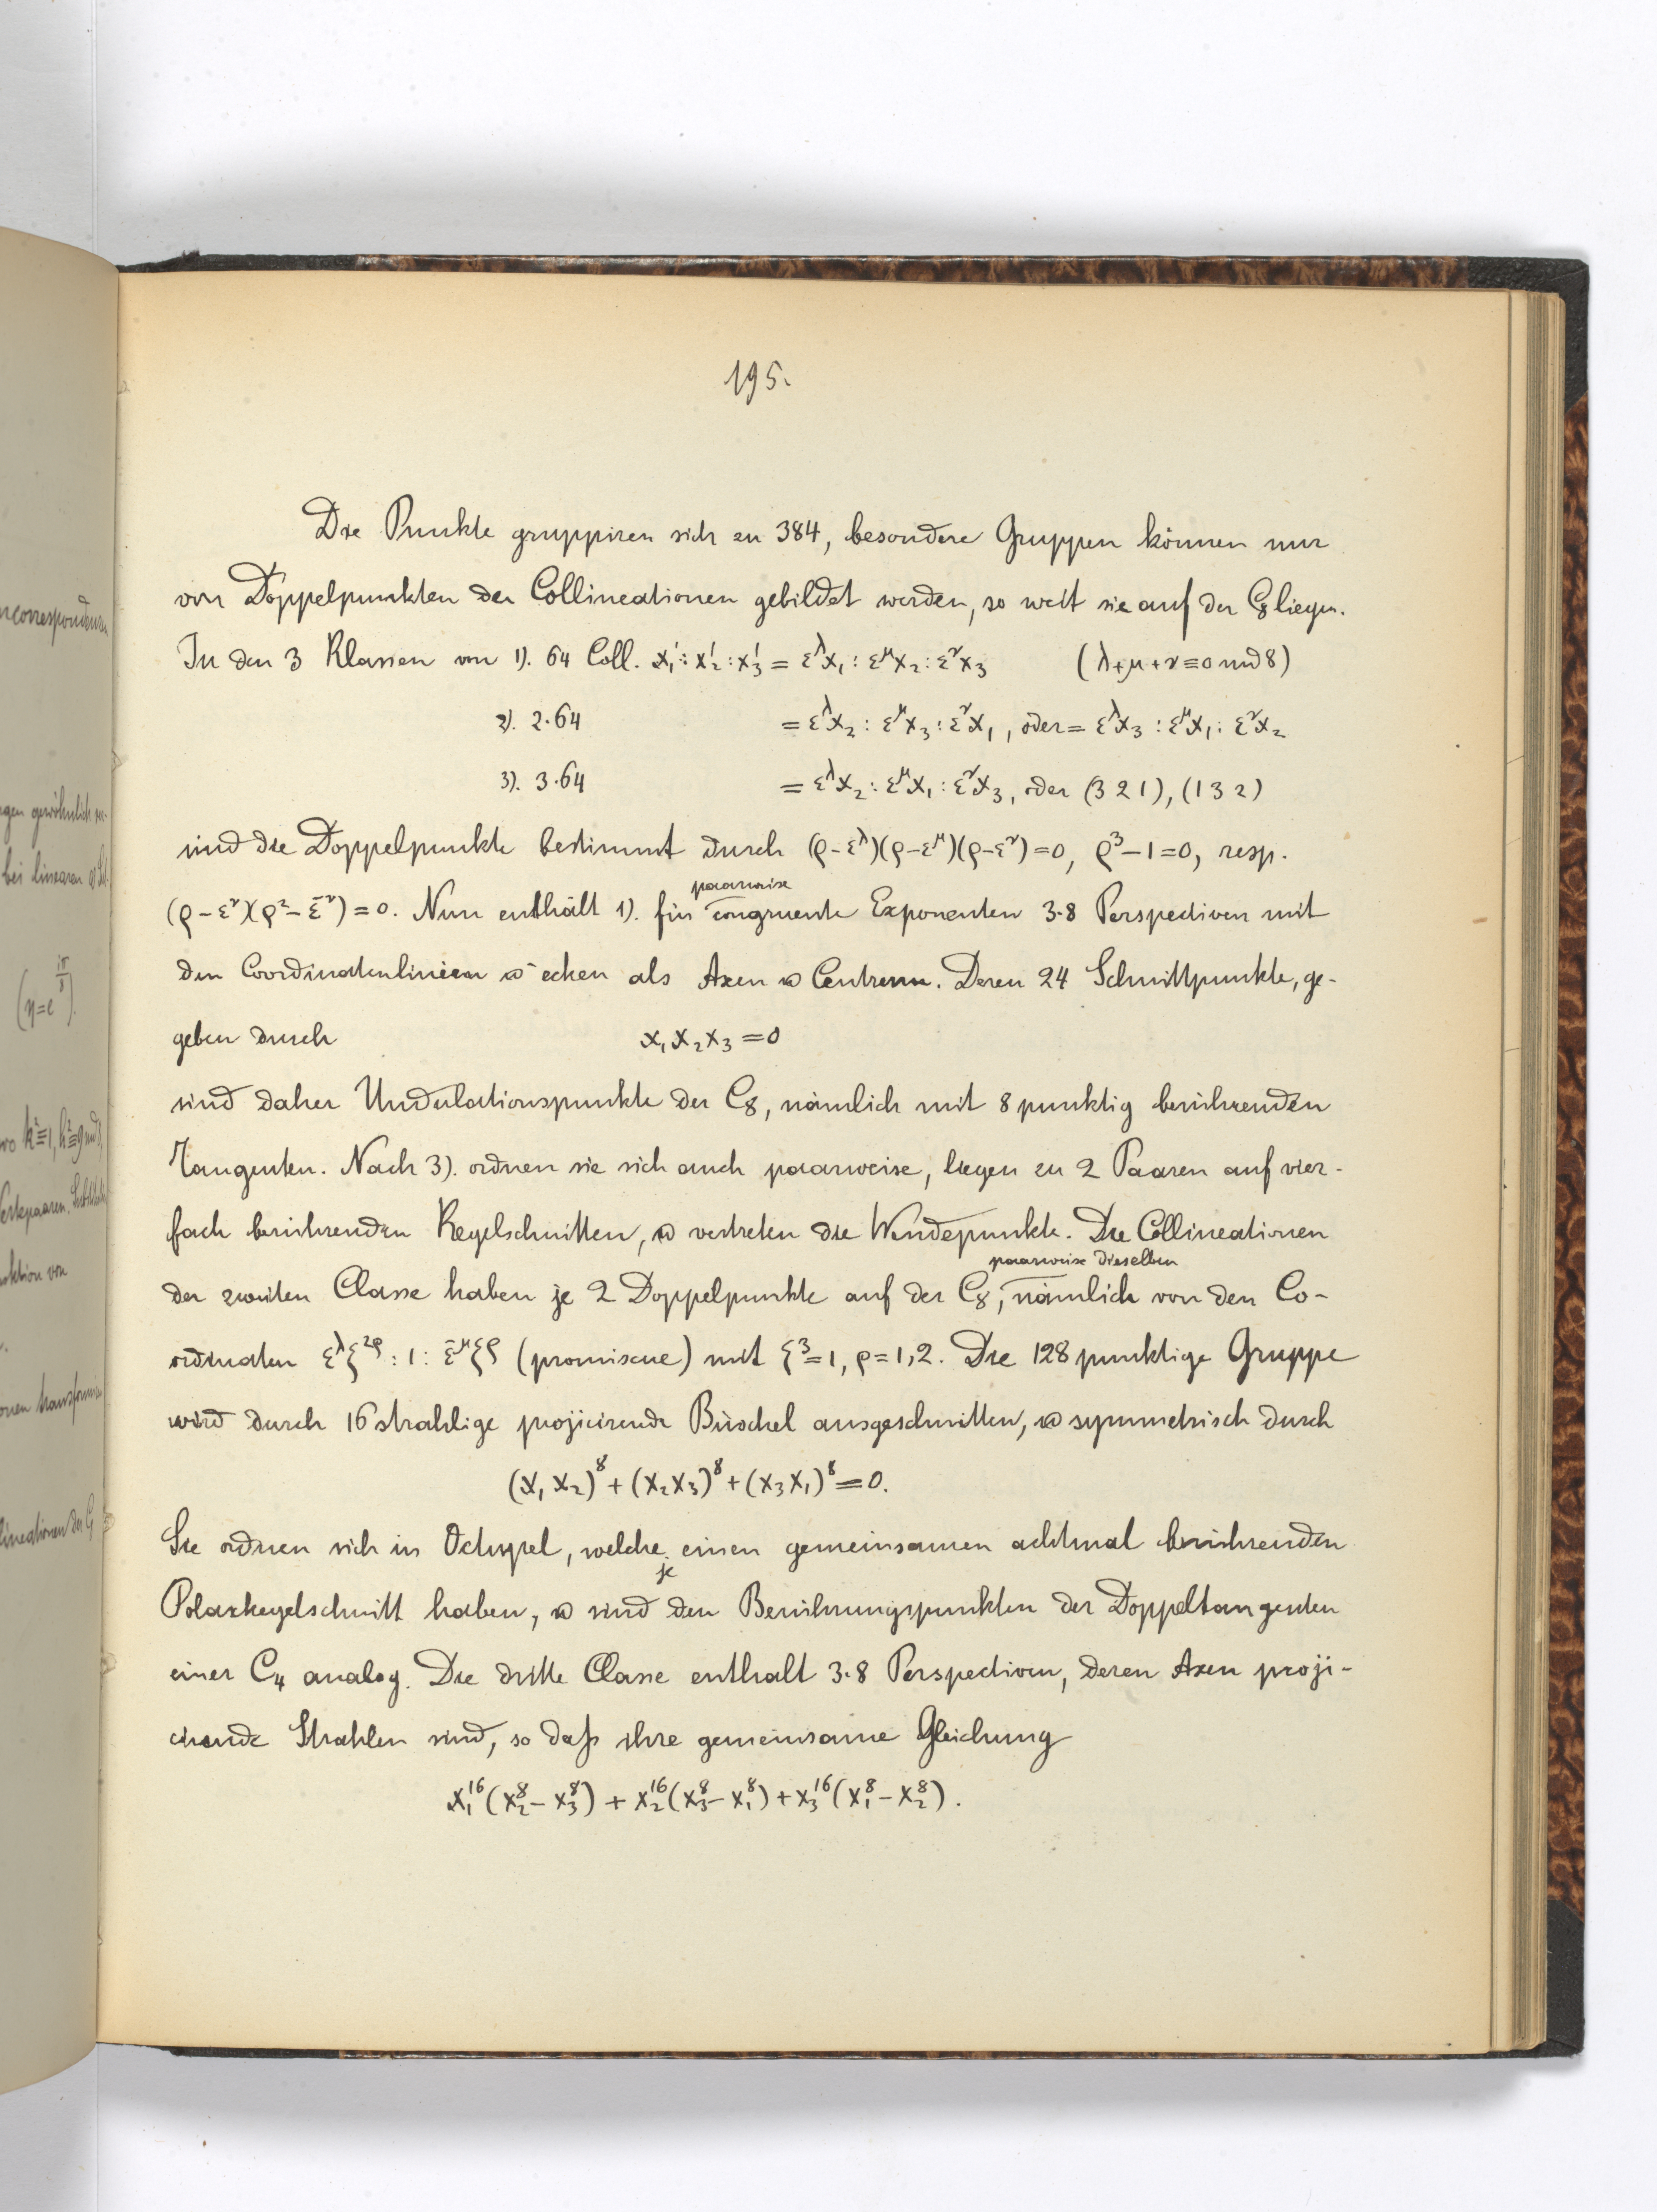 195.
Die Punkte gruppiren sich zu 384, besondere Gruppen können nur
von Doppelpunkten der Collineationen gebildet werden, so weit sie auf der C₈ liegen.
In den 3 Klassen von 1). 64 Coll. x₁':x₂':x₃' = ε^λx₁ : ε^μx₂ : ε^νx₃ (λ+μ+ν≡0 mod 8)
2). 2·64 = ε^λx₂ : ε^μx₃ : ε^νx₁, oder = ε^λx₃ : ε^μx₁ : ε^νx₂
3). 3·64 = ε^λx₂ : ε^μx₁ : ε^νx₃, oder (3 2 1), (1 3 2)
sind die Doppelpunkte bestimmt durch (ρ-ε^λ)(ρ-ε^μ)(ρ-ε^ν)=0, ρ³-1=0, resp.
(ρ-ε^ν)(ρ²-ε^-ν)=0. Nun enthält 1). für paarweise congruente Exponenten 3·8 Perspectiven mit
den Coordinatenlinien u -ecken als Axen u Centren. Deren 24 Schnittpunkte, ge-
geben durch x₁x₂x₃=0
sind daher Undulationspunkte der C₈, nämlich mit 8punktig berührenden
Tangenten. Nach 3). ordnen sie sich auch paarweise, liegen zu 2 Paaren auf vier-
fach berührenden Kegelschnitten, u vertreten die Wendepunkte. Die Collineationen
der zweiten Classe haben je 2 Doppelpunkte auf der C₈, paarweise dieselben nämlich von den Co-
ordinaten ε^λξ^2ρ : 1 : ε^-μξ^ρ (promiscue) mit ξ³=1, ρ=1,2. Die 128punktige Gruppe
wird durch 16strahlige projicirende Büschel ausgeschnitten, u symmetrisch durch
(x₁x₂)⁸+(x₂x₃)⁸+(x₃x₁)⁸=0.
Sie ordnen sich in Octupel, welche je einen gemeinsamen achtmal berührenden
Polarkegelschnitt haben, u sind den Berührungspunkten der Doppeltangenten
einer C₄ analog. Die dritte Classe enthalt 3·8 Perspectiven, deren Axen proji-
cirende Strahlen sind, so daß ihre gemeinsame Gleichung
x₁¹⁶(x₂⁸-x₃⁸) + x₂¹⁶(x₃⁸-x₁⁸) + x₃¹⁶(x₁⁸-x₂⁸).